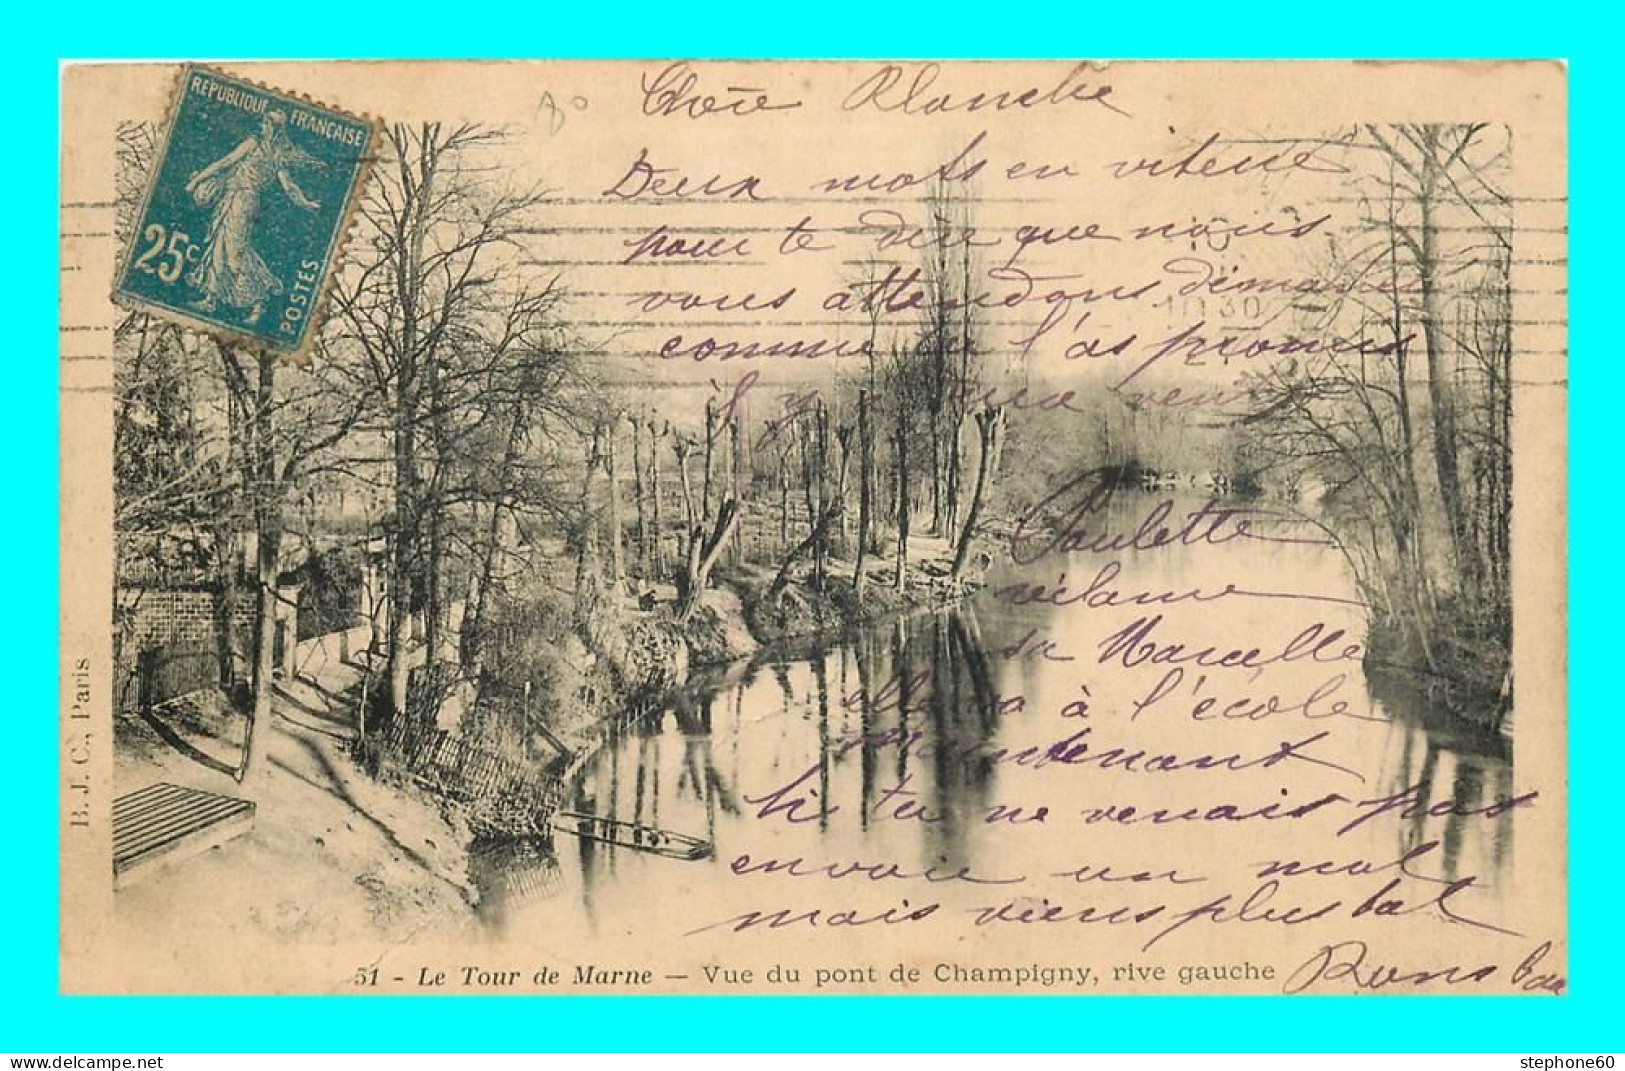 REPUBLIQUE FRANÇAISE
25c
POSTES
Chère Blanche
Deux mots en vitesse
pour te dire que nous
vous attendons dimanche
comme tu l'as promis
il y a
10
10 30
21
Paulette
réclame
sa Marcelle
elle va à l'école
maintenant
Si tu ne venais pas
envoie un mot
mais viens plustot
Bons bai
51 - Le Tour de Marne — Vue du pont de Champigny, rive gauche
B. J. C., Paris
stephone60